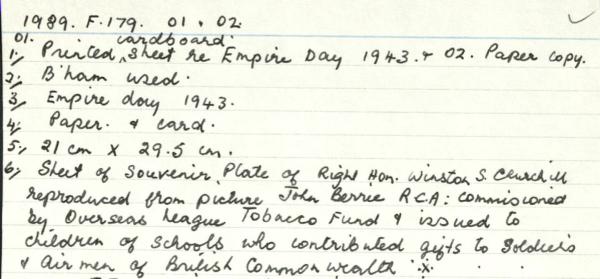 1989. F.179. 01 & 02.
01. cardboard.
1, Printed, Sheet re Empire Day 1943. & 02. Paper copy.
2, B'ham used.
3, Empire day 1943.
4, Paper. & card.
5, 21 cm X 29.5 cm.
6, Sheet of Souvenir Plate of Right Hon. Winston S. Churchill
reproduced from picture John Berrie R.C.A: Commissioned
by Overseas League Tobacco Fund & issued to
children of Schools who contributed gifts to Soldiers
& Airmen of British Commonwealth